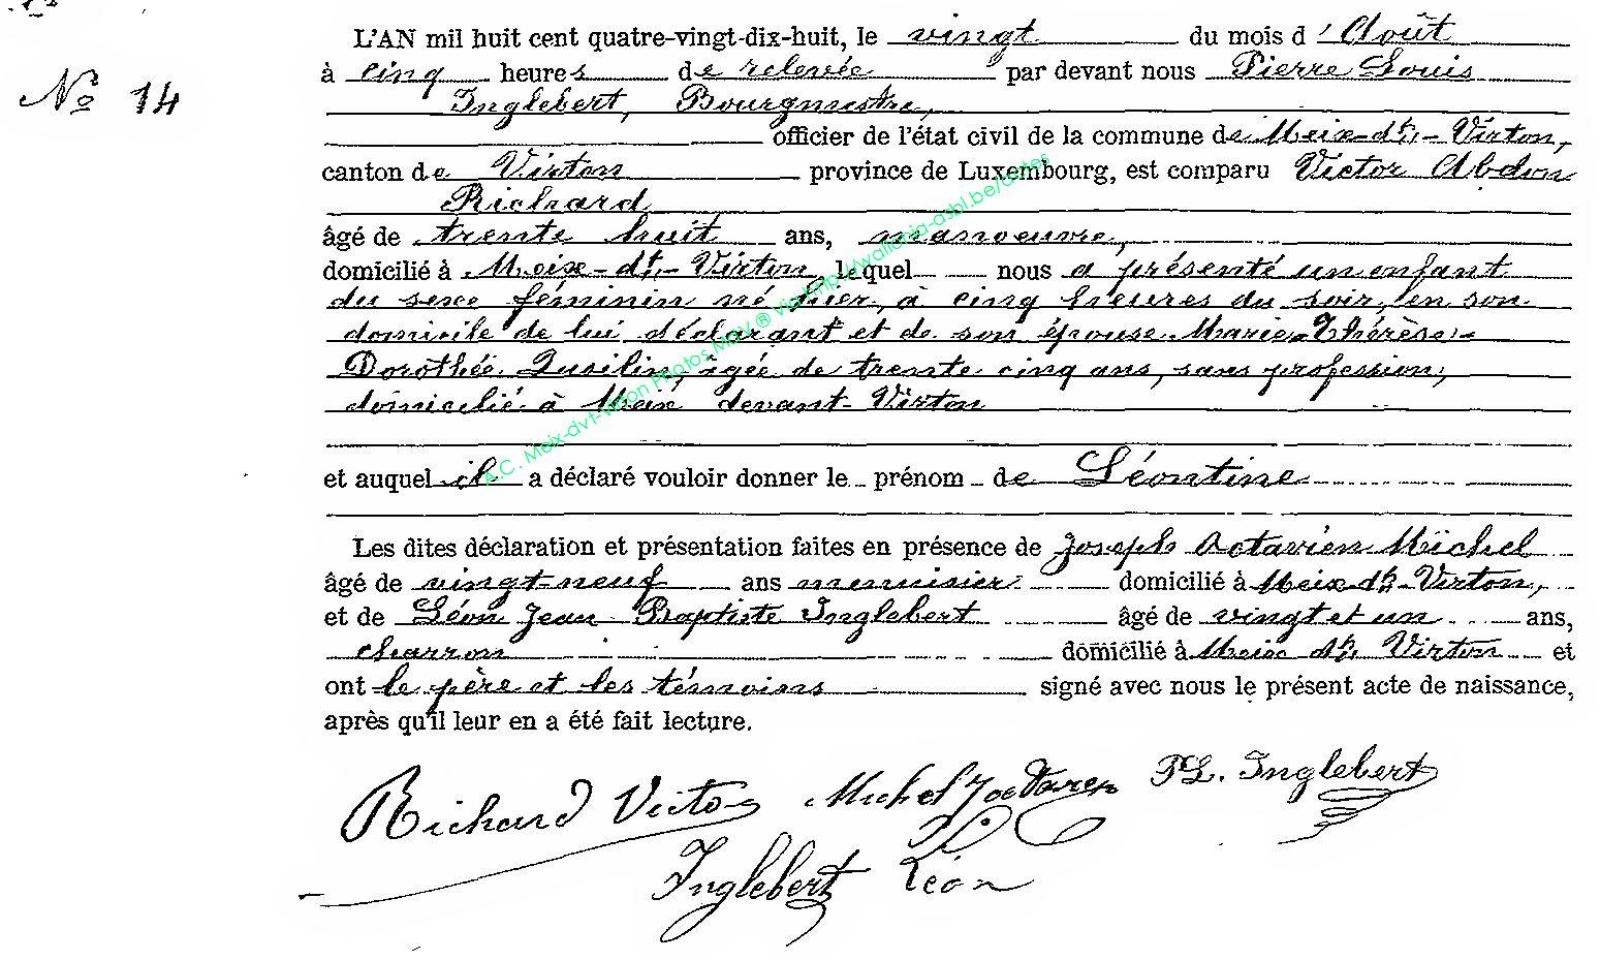 L'AN mil huit cent quatre-vingt-dix-huit, le vingt du mois d'Août
No 14
à cinq heures de relevée par devant nous Pierre Louis
Inglebert, Bourgmestre,
officier de l'état civil de la commune de Meix-dt-Virton,
canton de Virton province de Luxembourg, est comparu Victor Abdon
Richard
âgé de trente huit ans, manoeuvre,
domicilié à Meix-dt-Virton, lequel nous a présenté un enfant
du sexe féminin né hier, à cinq heures du soir, en son
domicile de lui déclarant et de son épouse Marie-Thérèse-
Dorothée Qusilin, âgée de trente cinq ans, sans profession,
domicilié à Meix devant-Virton
et auquel il a déclaré vouloir donner le prénom de Léontine
Les dites déclaration et présentation faites en présence de Joseph Octavien Michel
âgé de vingt-neuf ans menuisier domicilié à Meix-dt-Virton,
et de Léon Jean Baptiste Inglebert âgé de vingt et un ans,
charron domicilié à Meix dt Virton et
ont le père et les témoins signé avec nous le présent acte de naissance,
après qu'il leur en a été fait lecture.
Richard Victor Michel J P L. Inglebert
Inglebert Léon
A.C. Meix-dvt-Virton Photos MGV ® via http://wallonia-asbl.be/actes